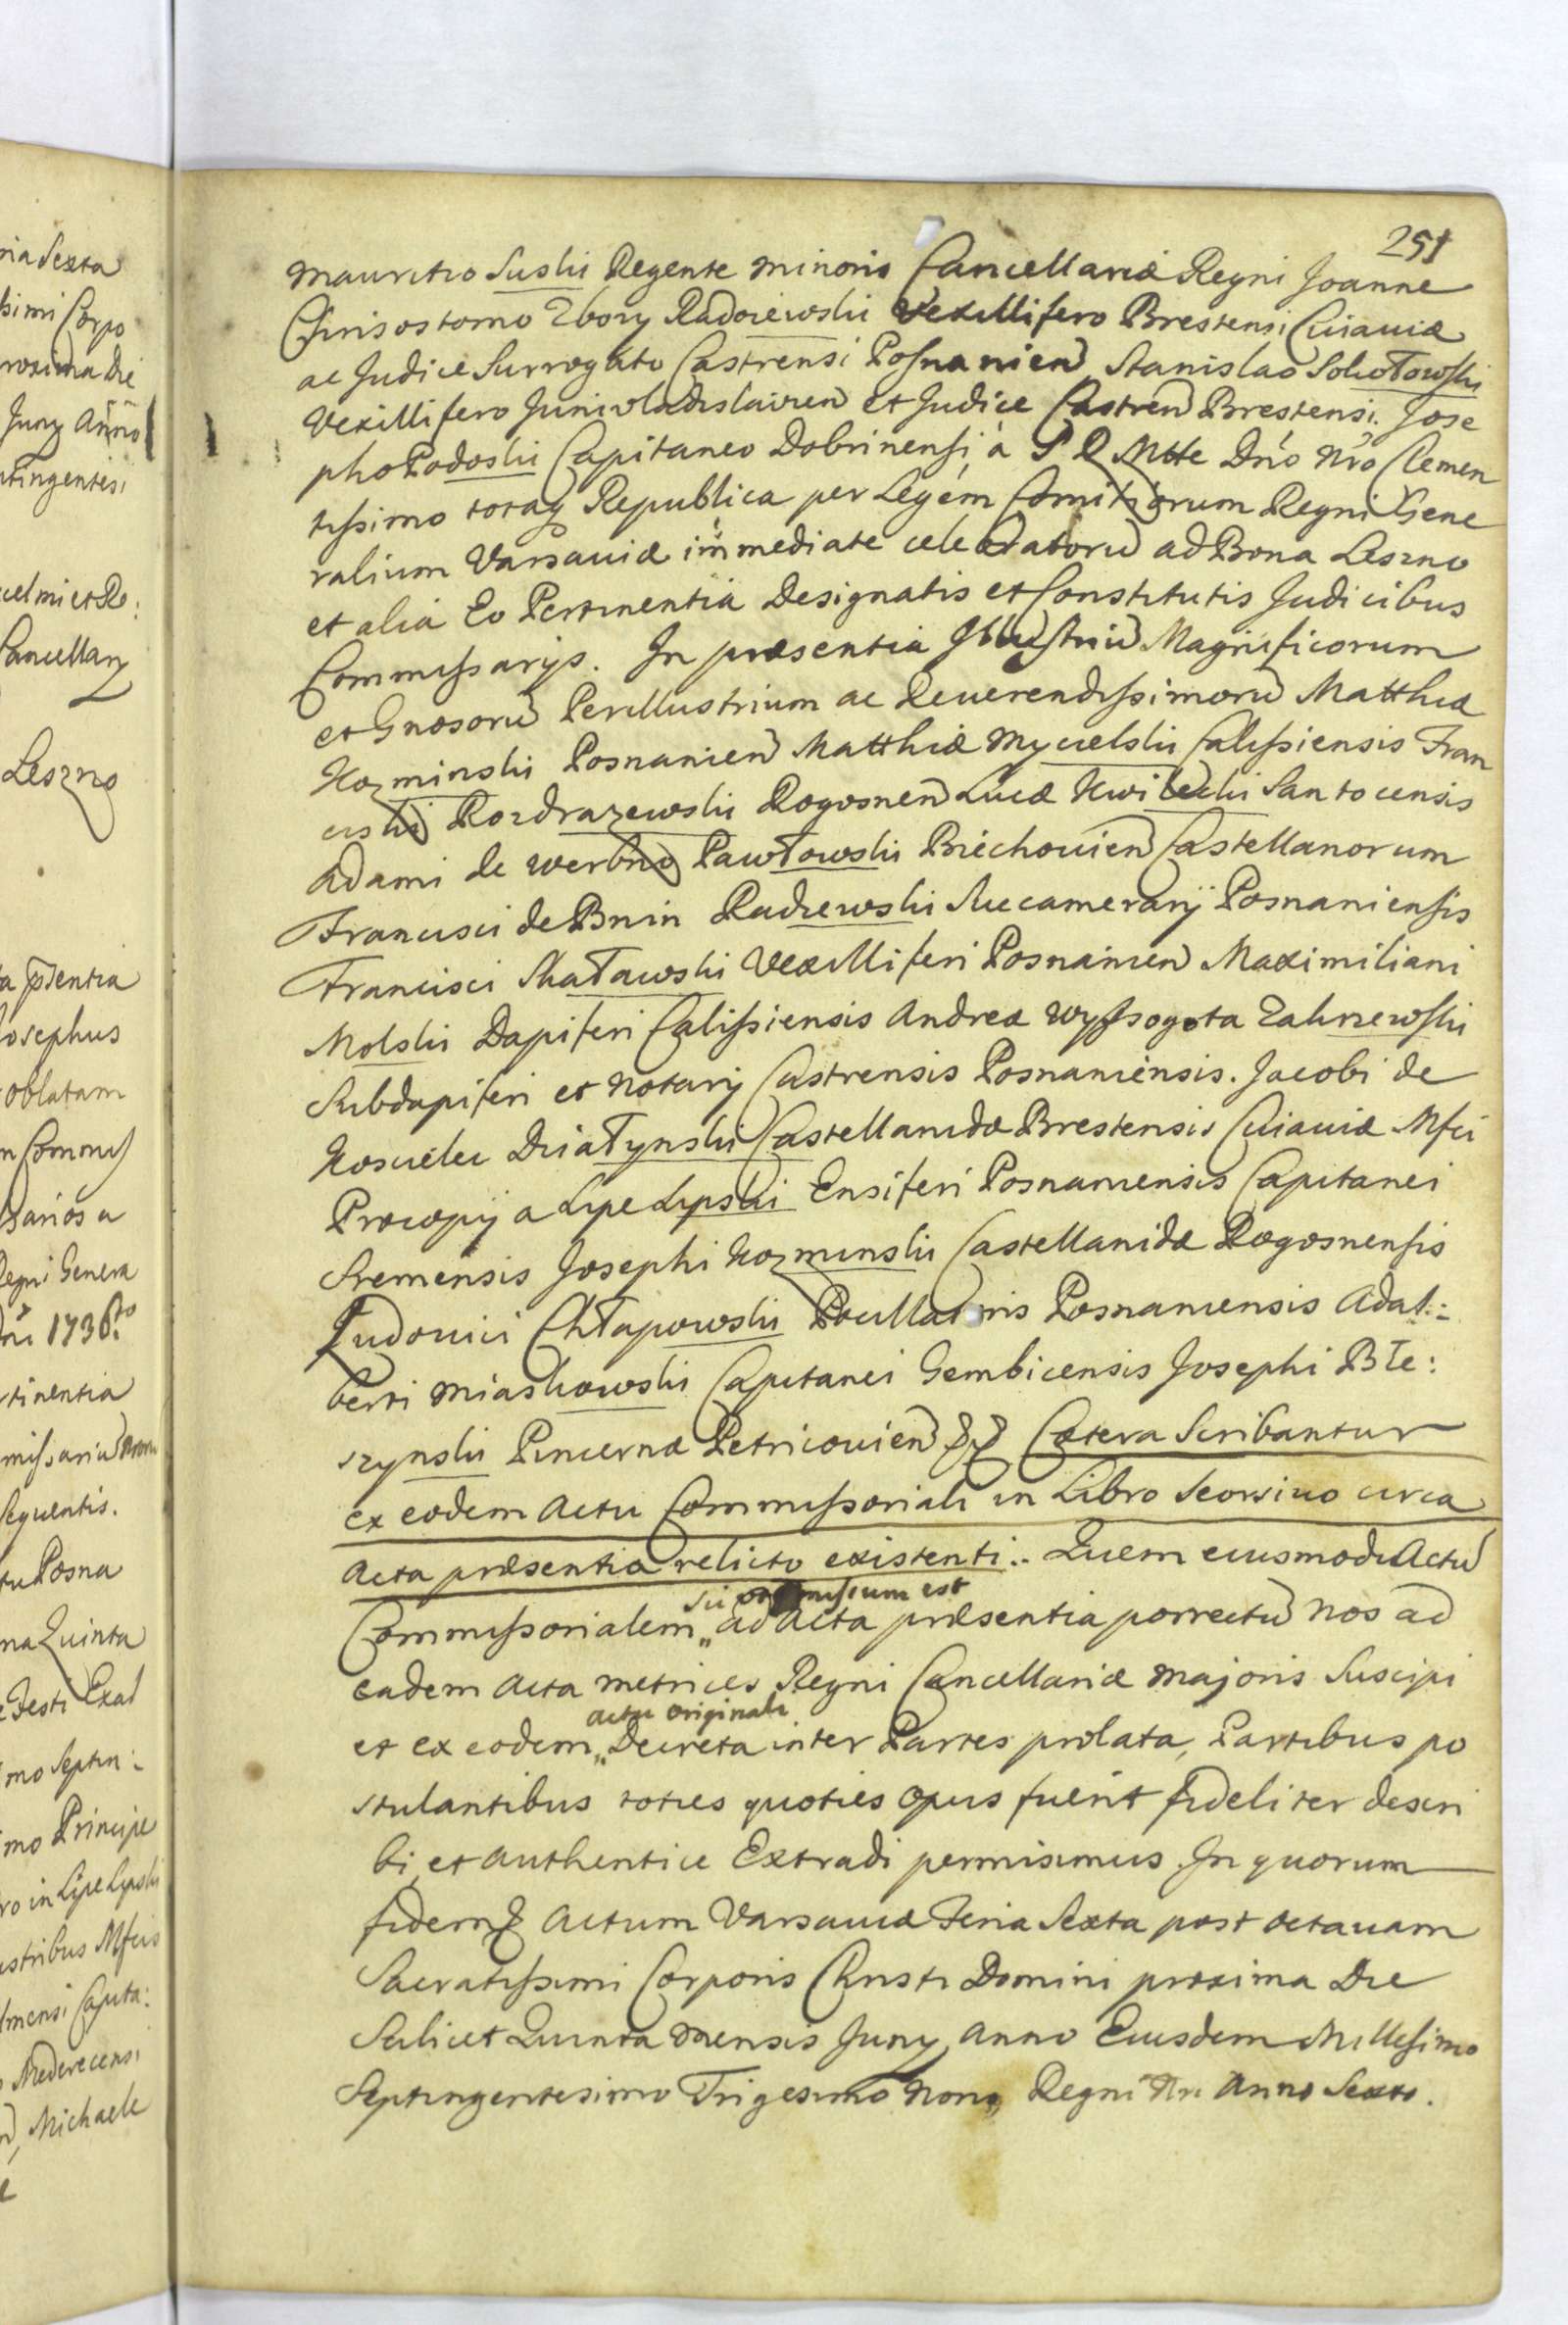 251
Mauritio Suski Regente Minoris Cancellariæ Regni Joanne
Chrisostomo Zbozy Radoiewski Vexillifero Brestensi Cuiauiæ
ac Judice Surrogato Castrensi Posnanien Stanislao Sokołowski
Vexillifero Junivladislauien et Judice Castren Brestensi. Jose
pho Podoski Capitaneo Dobrinensi, à S R Mtte Dno Nro Clemen
tissimo totaq Republica per Legem Comitiorum Regni Gene
ralium Varsauiæ immediate celebratorū ad Bona Leszno
et alia Eo Pertinentia Designatis et Constitutis Judicibus
Commissarijs. In præsentia Illustriū Magnificorum
et Gnosorū Perillustrium ac Reuerendissimorū Matthiæ
Kozminski Posnanien Matthiæ Mycielski Calissiensis Fran
cisci Rozdrazewski Rogosnen Lucæ Kwilecki Santocensis
Adami de Werbno Pawłowski Biechouien Castellanorum
Francisci de Bnin Radzewski Succamerarij Posnaniensis
Francisci Skaławski Vexilliferi Posnanien Maximiliani
Molski Dapiferi Calissiensis Andreæ Wyssogota Zakrzewski
Subdapiferi et Notarij Castrensis Posnaniensis. Jacobi de
Koscielec Działynski Castellanidæ Brestensis Cuiauiæ Mfci
Procopij a Lipe Lipski Ensiferi Posnaniensis Capitanei
Sremensis Josephi Kozminski Castellanidæ Rogosnensis
Ludouici Chłapowski Pocillatoris Posnaniensis Adal:
berti Miaskowski Capitanei Gembicensis Josephi Błe:
szynski Pincernæ Petricouien Cætera Scribantur
ex eodem Actu Commissoriali in Libro Seorsiuo circa
Acta præsentia relicto existenti.. Quem eiusmodi Actū
Commissorialem,, ad Acta præsentia porrectū Nos ad
eadem Acta Metrices Regni Cancellariæ Majoris Suscipi
actu originali
et ex eodem,, Decreta inter Partes prolata, Partibus po
stulantibus toties quoties Opus fuerit fideliter descri
bi, et Authentice Extradi permisimus. In quorum
fidem Actum Varsauiæ Feria Sexta post Octauam
Sacratissimi Corporis Christi Domini proxima Die
Scilicet Quinta Mensis Juny Anno Eiusdem Millesimo
Septingentesimo Trigesimo Nono, Regni Nri Anno Sexto.